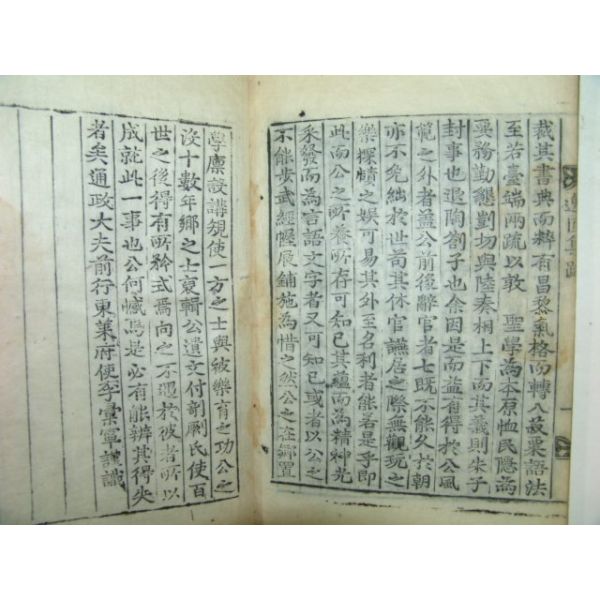 裁其書典而粹有昌黎氣格而轉入菽粟語法
至若臺端兩疏以敦 聖學為本原恤民隱為
要務勤懇剴切與陸奏相上下而其義則朱子
封事也退陶劄子也余因是而益有得於公風
範之外者蓋公前後辭官者七既不能久於朝
亦不免絀於世苟其休官讌居之際無觀玩之
樂探賾之娛可易其外至名利者能若是乎即
此而公之所養所存可知已其蘊而為精神光
采發而為言語文字者又可知已或者以公之
不能步武經幄展鋪施為惜之然公之莅鄉置
學廩設講規使一方之士與被樂育之功公之
沒十數年鄉之士裒輯公遺文付剞劂氏使百
世之後得有所矜式焉向之不遇於彼者所以
成就此一事也公何憾焉是必有能辨其得失
者矣通政大夫前行東萊府使李彙寧謹識